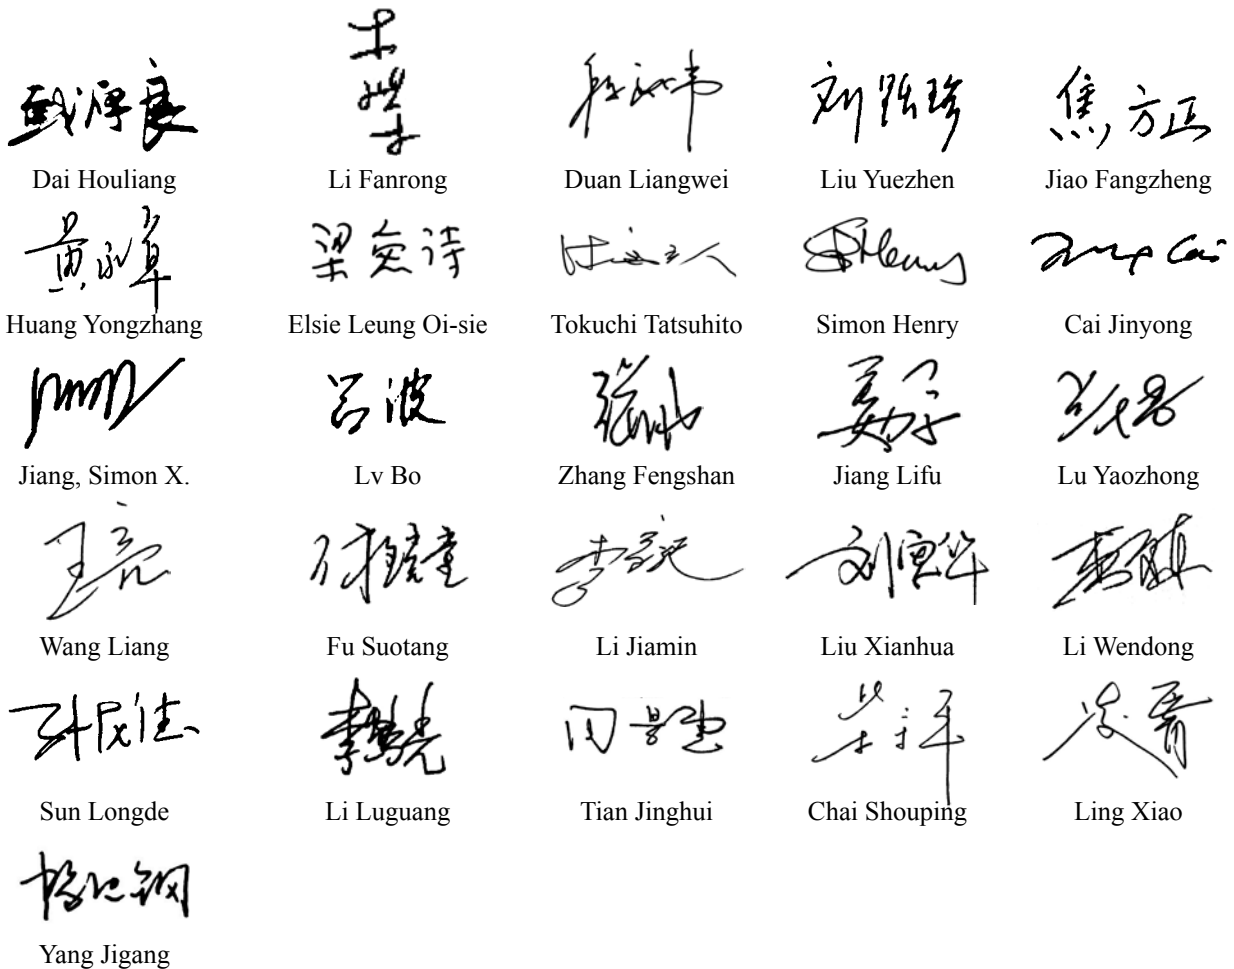 戴厚良 段良伟 刘跃珍 焦方正
Dai Houliang Li Fanrong Duan Liangwei Liu Yuezhen Jiao Fangzheng
黄永章 梁爱诗 Simon Henry
Huang Yongzhang Elsie Leung Oi-sie Tokuchi Tatsuhito Simon Henry Cai Jinyong
吕波
Jiang, Simon X. Lv Bo Zhang Fengshan Jiang Lifu Lu Yaozhong
王亮 付锁堂 刘宪华
Wang Liang Fu Suotang Li Jiamin Liu Xianhua Li Wendong
孙龙德 李鹭光 田景惠 柴守平 凌霄
Sun Longde Li Luguang Tian Jinghui Chai Shouping Ling Xiao
杨继钢
Yang Jigang